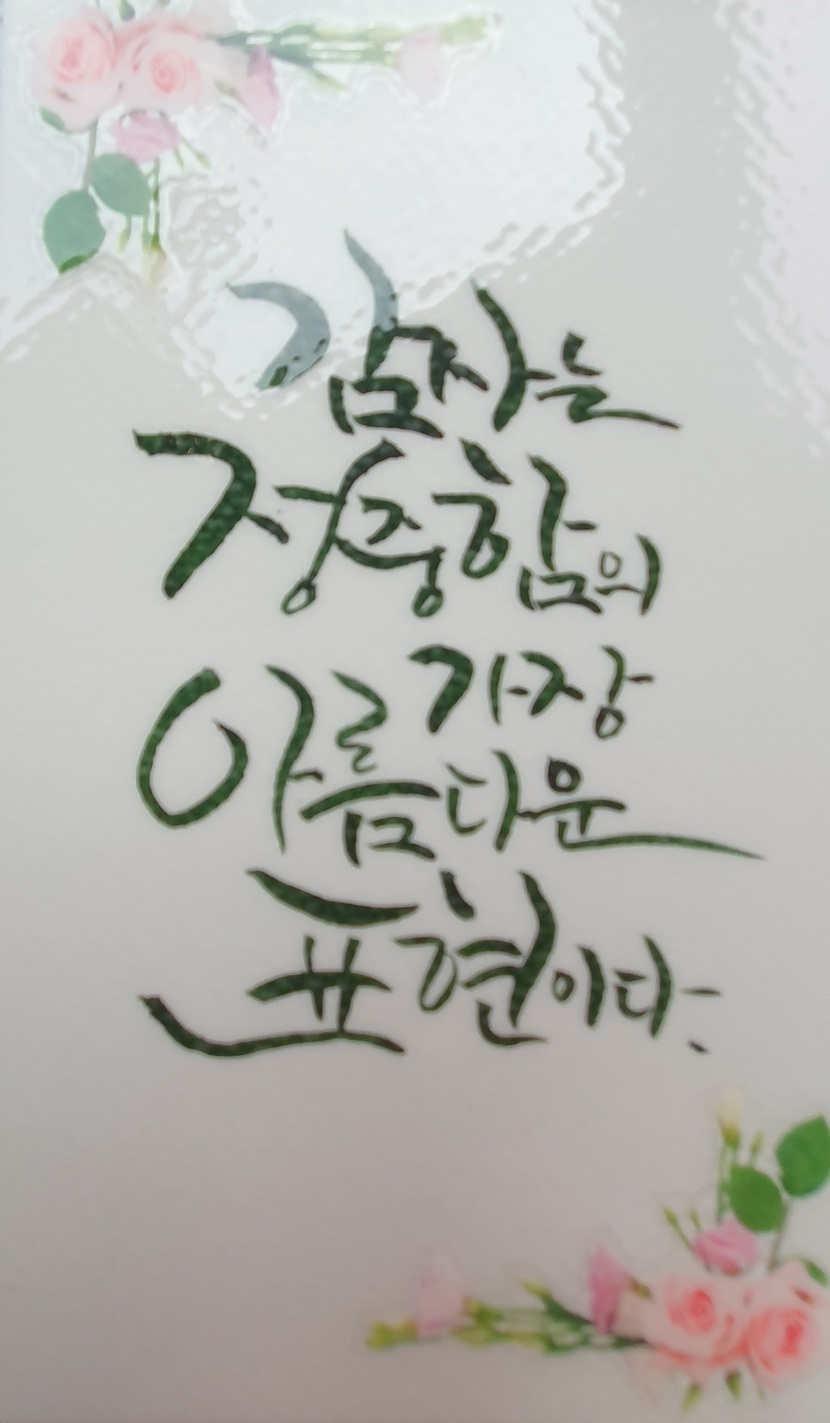 감사는
정중함의
가장
아름다운
표현이다.